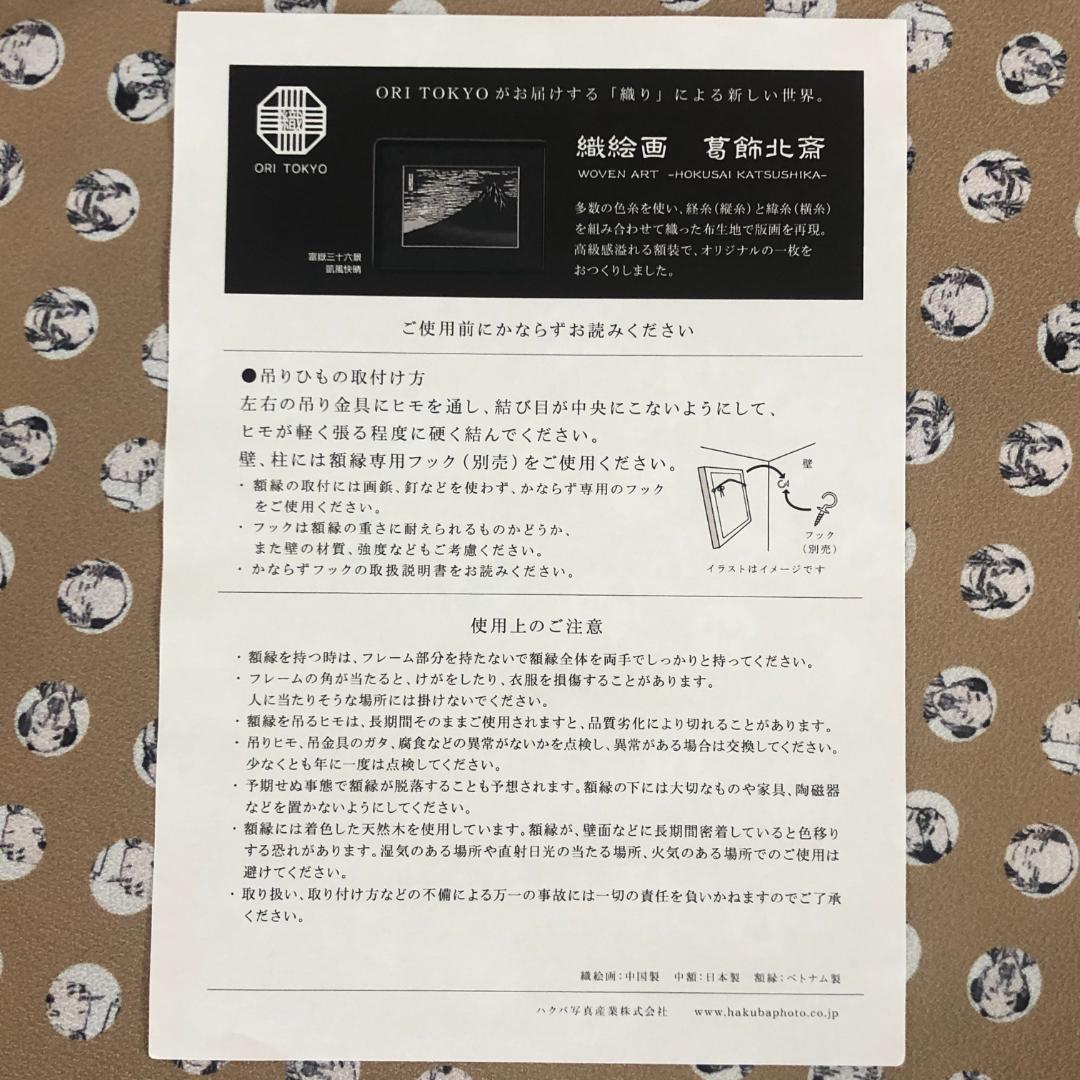 ORI TOKYOがお届けする「織り」による新しい世界。
織
ORI TOKYO
織絵画　葛飾北斎
WOVEN ART -HOKUSAI KATSUSHIKA-
多数の色糸を使い、経糸(縦糸)と緯糸(横糸)
を組み合わせて織った布生地で版画を再現。
高級感溢れる額装で、オリジナルの一枚を
おつくりしました。
富嶽三十六景
凱風快晴
ご使用前にかならずお読みください
●吊りひもの取付け方
左右の吊り金具にヒモを通し、結び目が中央にこないようにして、
ヒモが軽く張る程度に硬く結んでください。
壁、柱には額縁専用フック(別売)をご使用ください。
・額縁の取付には画鋲、釘などを使わず、かならず専用のフック
をご使用ください。
・フックは額縁の重さに耐えられるものかどうか、
また壁の材質、強度などもご考慮ください。
・かならずフックの取扱説明書をお読みください。
壁
フック
(別売)
イラストはイメージです
使用上のご注意
・額縁を持つ時は、フレーム部分を持たないで額縁全体を両手でしっかりと持ってください。
・フレームの角が当たると、けがをしたり、衣服を損傷することがあります。
人に当たりそうな場所には掛けないでください。
・額縁を吊るヒモは、長期間そのままご使用されますと、品質劣化により切れることがあります。
・吊りヒモ、吊金具のガタ、腐食などの異常がないかを点検し、異常がある場合は交換してください。
少なくとも年に一度は点検してください。
・予期せぬ事態で額縁が脱落することも予想されます。額縁の下には大切なものや家具、陶磁器
などを置かないようにしてください。
・額縁には着色した天然木を使用しています。額縁が、壁面などに長期間密着していると色移り
する恐れがあります。湿気のある場所や直射日光の当たる場所、火気のある場所でのご使用は
避けてください。
・取り扱い、取り付け方などの不備による万一の事故には一切の責任を負いかねますのでご了承
ください。
織絵画：中国製　中額：日本製　額縁：ベトナム製
ハクバ写真産業株式会社　www.hakubaphoto.co.jp